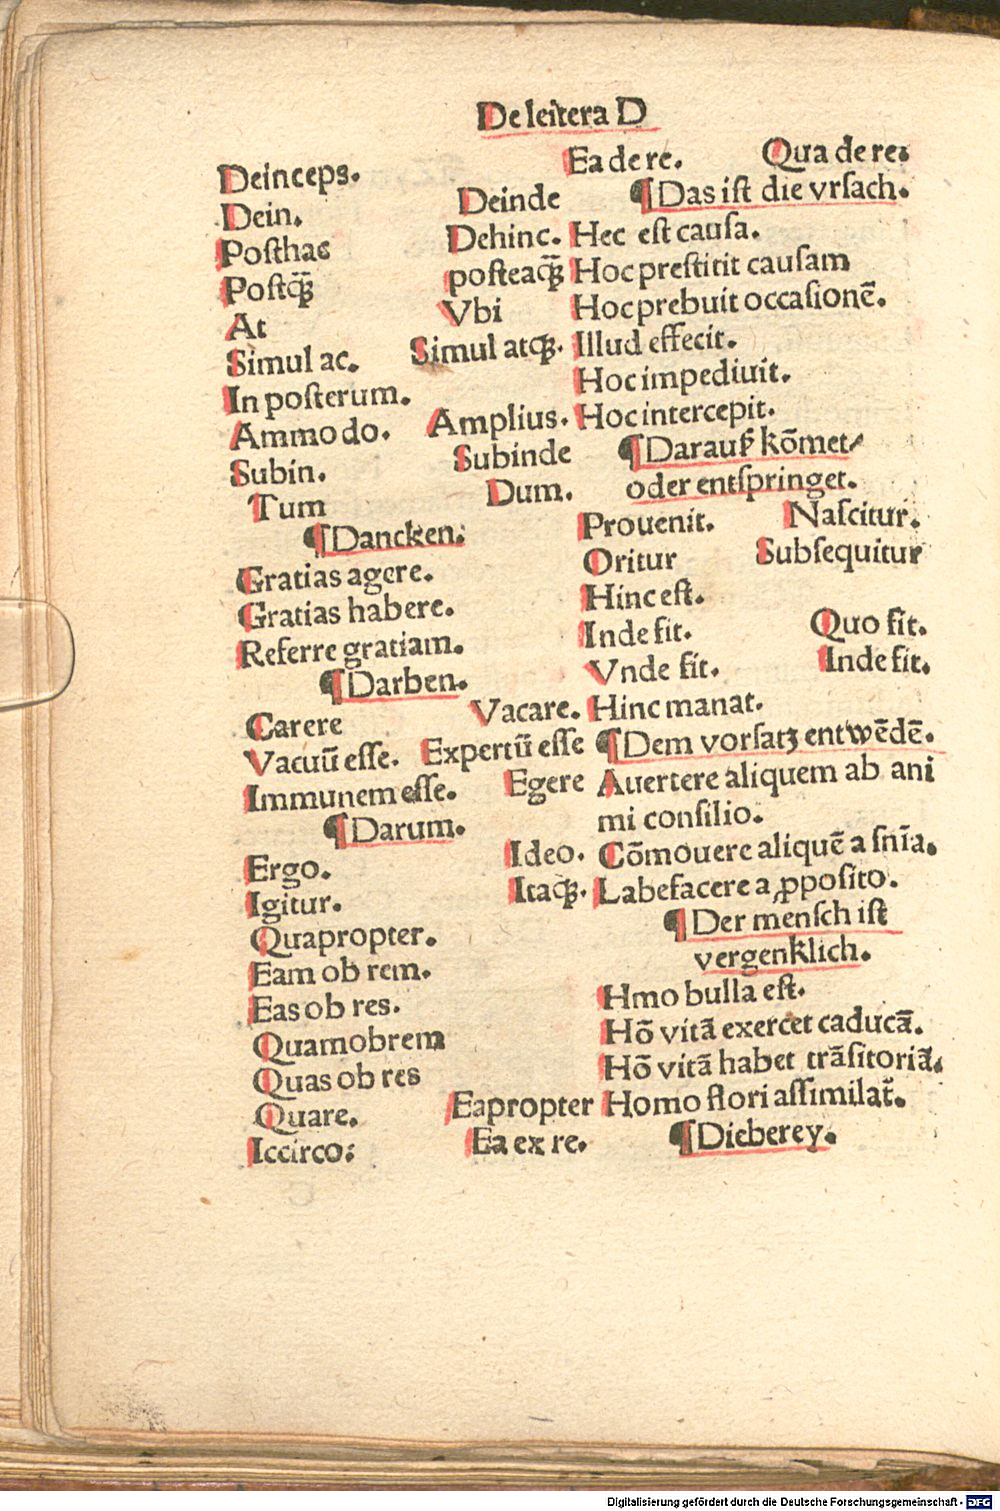 De leittera D
Deinceps.
Dein. Deinde
Posthac Dehinc.
Postq̄ʒ posteaq̄ʒ
At Vbi
Simul ac. Simul atqʒ.
In posterum.
Ammodo. Amplius.
Subin. Subinde
Tum Dum.
¶Dancken.
Gratias agere.
Gratias habere.
Referre gratiam.
¶Darben.
Carere Vacare.
Vacuū esse. Expertū esse
Immunem esse. Egere
¶Darum.
Ergo. Ideo.
Igitur. Itaqʒ.
Quapropter.
Eam ob rem.
Eas ob res.
Quamobrem
Quas ob res
Quare. Eapropter
Iccirco: Ea ex re.
Ea de re. Qua de re.
¶Das ist die vrsach.
Hec est causa.
Hoc prestitit causam
Hoc prebuit occasionē.
Illud effecit.
Hoc impediuit.
Hoc intercepit.
¶Darauß kōmet/
oder entspringet.
Prouenit. Nascitur.
Oritur Subsequitur
Hinc est.
Inde fit. Quo fit.
Vnde fit. Inde fit.
Hinc manat.
¶Dem vorsatz entwēdē.
Auertere aliquem ab ani
mi consilio.
Cōmouere aliquē a snīa.
Labefacere a ꝓposito.
¶Der mensch ist
vergenklich.
Hmo bulla est.
Hō vitā exercet caducā.
Hō vitā habet trāsitoriā.
Homo flori assimilat̄.
¶Dieberey.
Digitalisierung gefördert durch die Deutsche Forschungsgemeinschaft - DFG